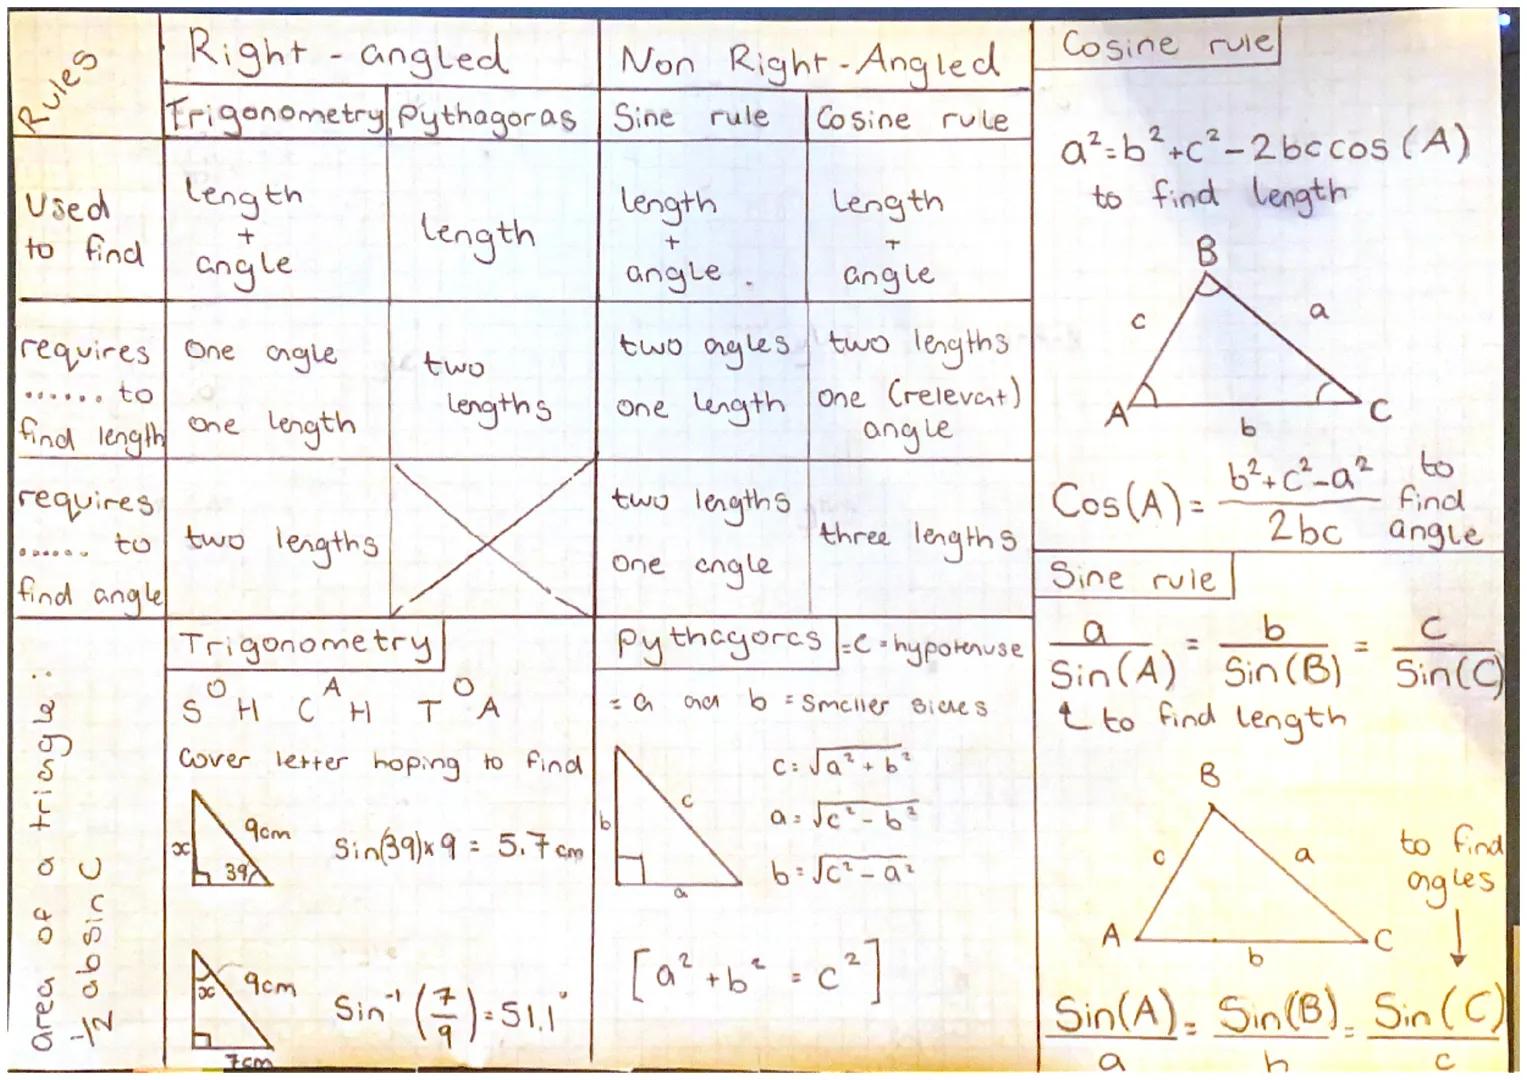 Rules
Right-angled
Non Right-Angled
Trigonometry
Pythagoras
Sine rule
Cosine rule
Used
to find
length
+
angle
length
length
+
angle
length
+
angle
requires
...... to
find length
one agle
one length
two
lengths
two agles
one length
two lengths
one (relevent)
angle
requires
...... to
find angle
two lengths
two lengths
one angle
three lengths
area of a triangle:
½ absin C
Trigonometry
O A O
S H C H T A
Cover letter hoping to find
x
9cm
39
Sin(39)×9 = 5.7cm
x
9cm
7cm
Sin⁻¹(7/9)=51.1°
Pythagoras =C=hypotenuse
= a and b = Smaller sides
b
c
a
c=√a²+b²
a=√c²-b²
b=√c²-a²
[a²+b²=c²]
Cosine rule
a²=b²+c²-2bccos(A)
to find length
B
c
a
A
b
C
Cos(A)= b²+c²-a² / 2bc to find angle
Sine rule
a/Sin(A) = b/Sin(B) = c/Sin(C)
to find length
B
c
a
A
b
C
to find
agles
Sin(A)/a = Sin(B)/b = Sin(C)/c